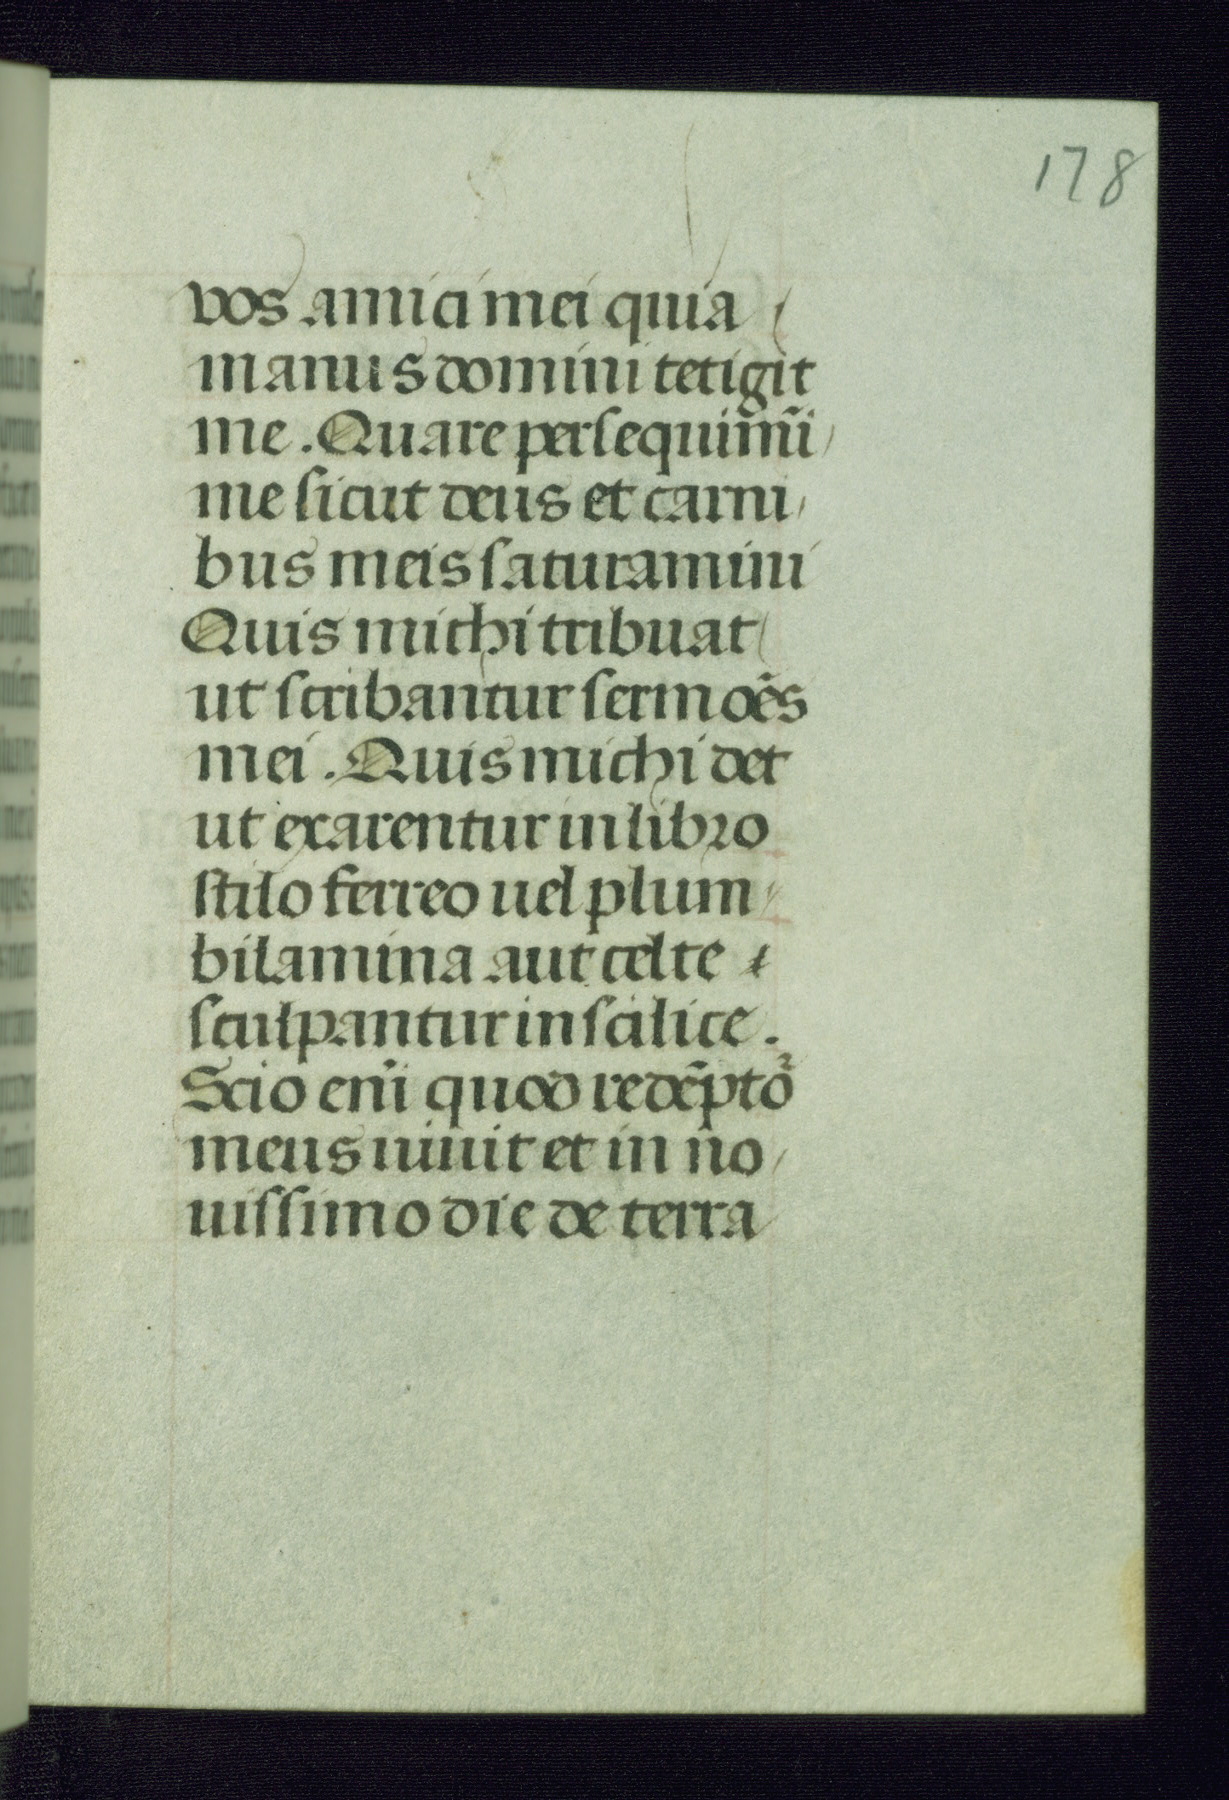 178
vos amici mei quia
manus domini tetigit
me . Quare persequim̄i
me sicut deus et carni
bus meis saturamini
Quis michi tribuat
ut scribantur sermoēs
mei . Quis michi det
ut exarentur in libro
stilo ferreo uel plum
bi lamina aut celte
sculpantur in scilice .
Scio eni̅ quod redēpto᷑
meus uiuit et in no
uissimo die de terra